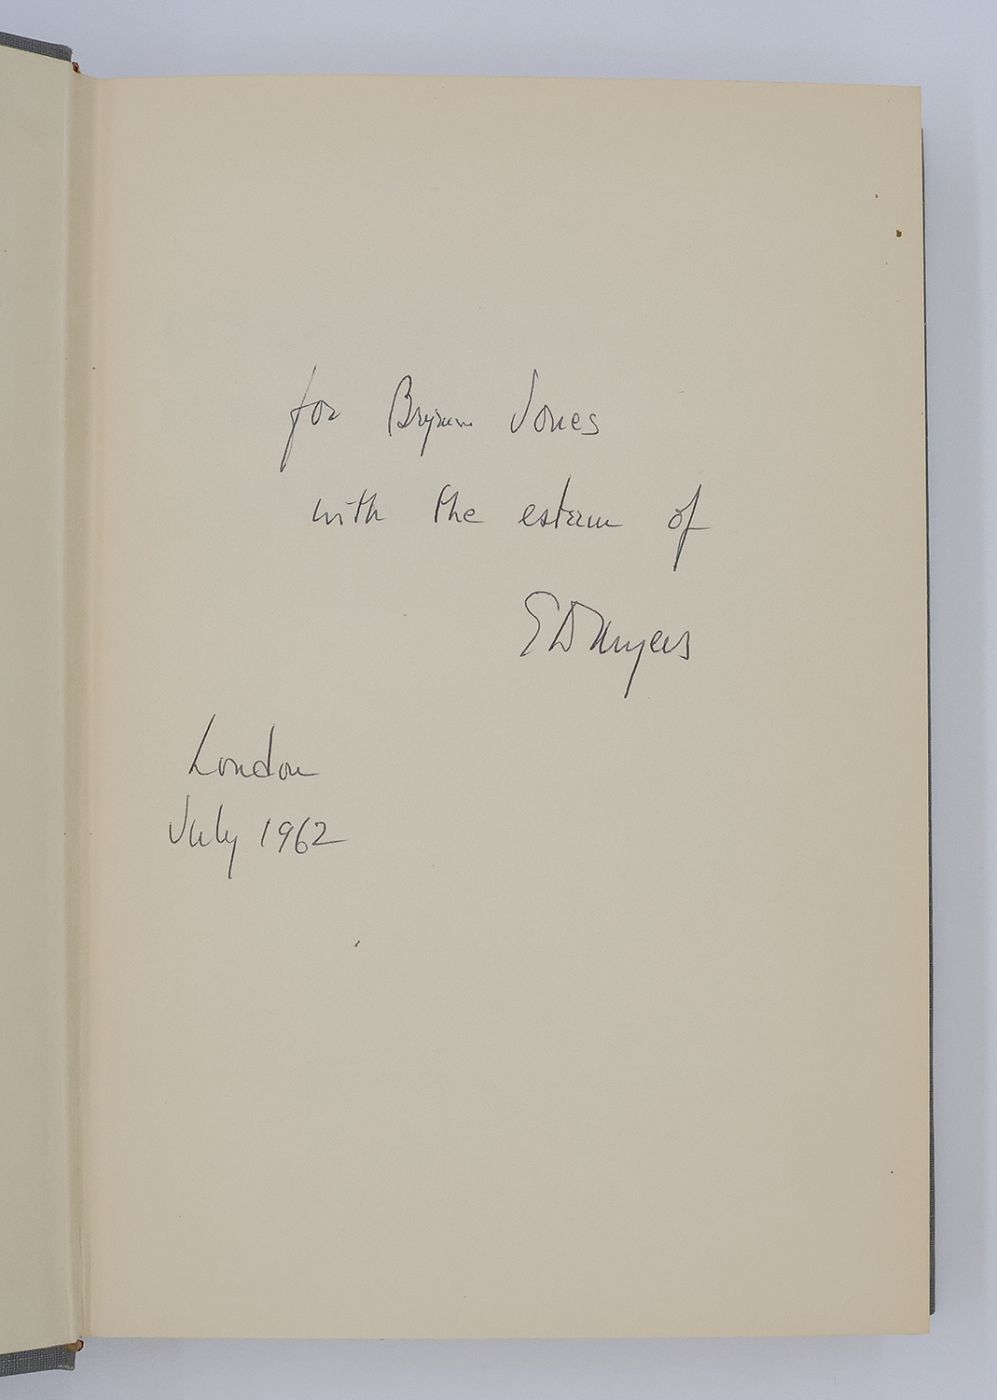 for Brynmor Jones
with the esteem of
London
July 1962